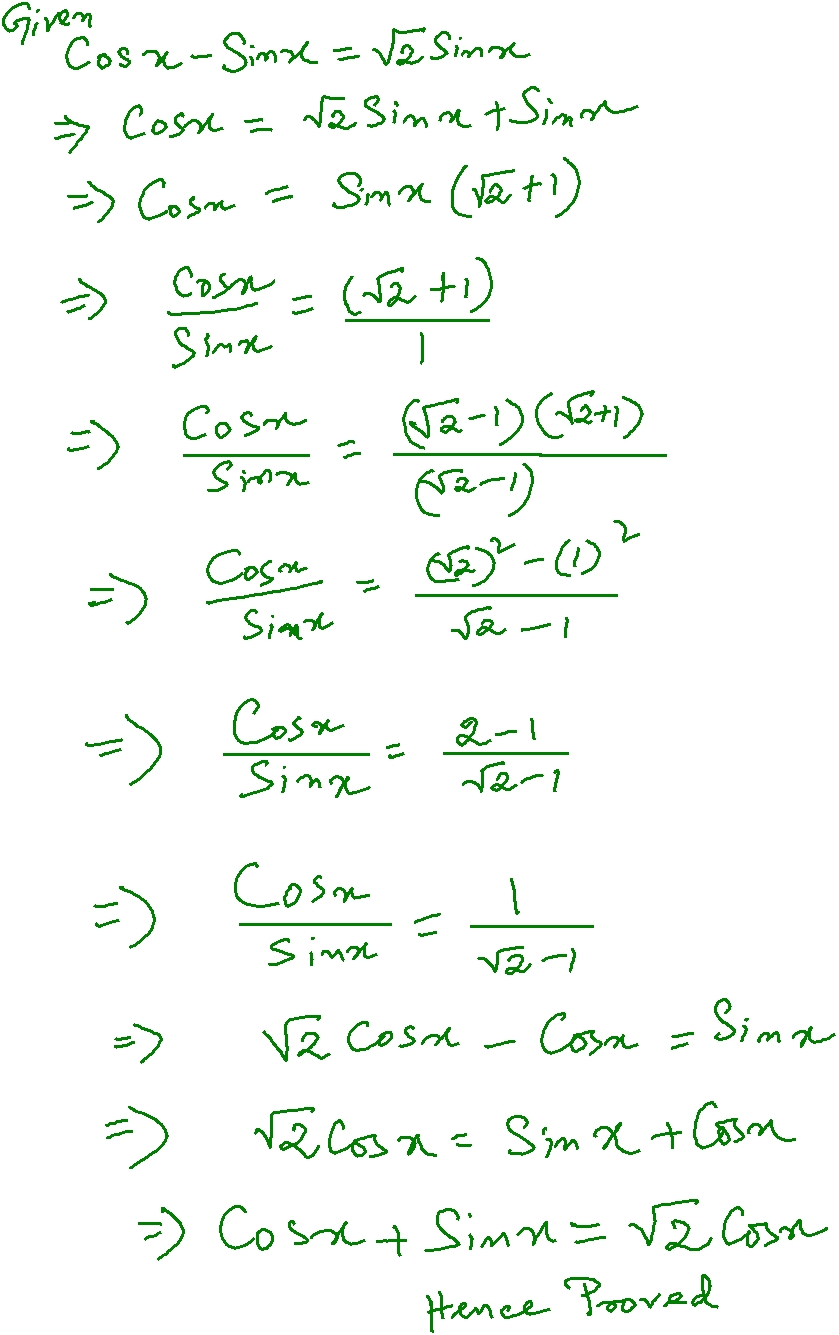 Given
Cos x - Sinx = √2 Sinx
⇒ Cosx = √2 Sinx + Sinx
⇒ Cosx = Sinx (√2 + 1)
⇒ Cosx / Sinx = (√2 + 1) / 1
⇒ Cosx / Sinx = (√2 - 1) (√2 + 1) / (√2 - 1)
⇒ Cosx / Sinx = (√2)² - (1)² / √2 - 1
⇒ Cosx / Sinx = 2 - 1 / √2 - 1
⇒ Cosx / Sinx = 1 / √2 - 1
⇒ √2 Cosx - Cosx = Sinx
⇒ √2 Cosx = Sinx + Cosx
⇒ Cosx + Sinx = √2 Cosx
Hence Prooved